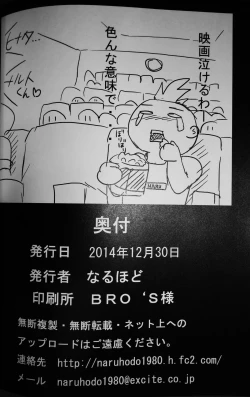 映画泣けるわ
色んな意味で
ヒナタ…
ナルトくん
ぼりぼり
奥付
発行日　2014年12月30日
発行者　なるほど
印刷所　ＢＲＯ‘Ｓ様
無断複製・無断転載・ネット上への
アップロードはご遠慮ください。
連絡先　http://naruhodo1980.h.fc2.com/
メール　naruhodo1980@excite.co.jp